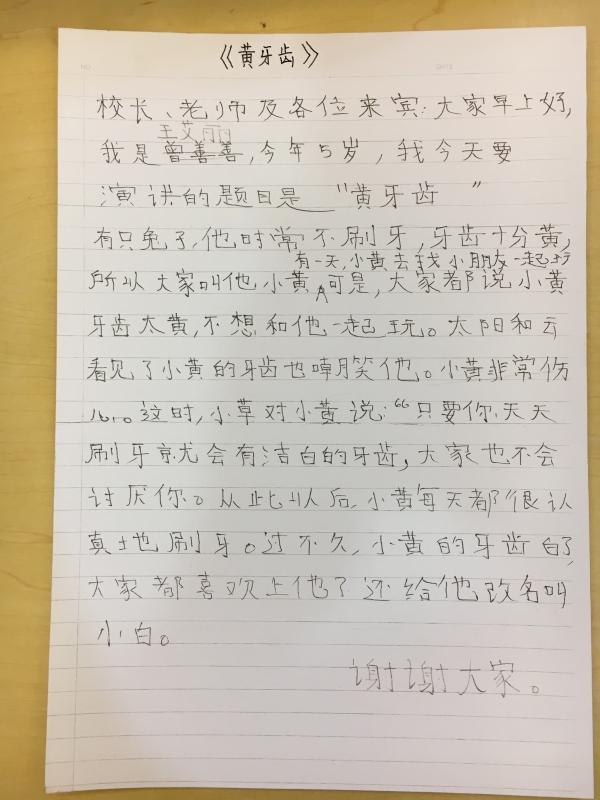 《黄牙齿》
校长、老师及各位来宾:大家早上好,
王艾丽
我是曾善善,今年5岁,我今天要
演讲的题目是 "黄牙齿 "
有只兔子,他时常不刷牙,牙齿十分黄,
有一天,小黄去找小朋友一起玩
所以大家叫他小黄,可是,大家都说小黄
牙齿太黄,不想和他一起玩。太阳和云
看见了小黄的牙齿也嘲笑他。小黄非常伤
心。这时,小草对小黄说:“只要你天天
刷牙就会有洁白的牙齿,大家也不会
讨厌你。从此以后,小黄每天都很认
真地刷牙。过不久,小黄的牙齿白了,
大家都喜欢上他了还给他改名叫
小白。
谢谢大家。